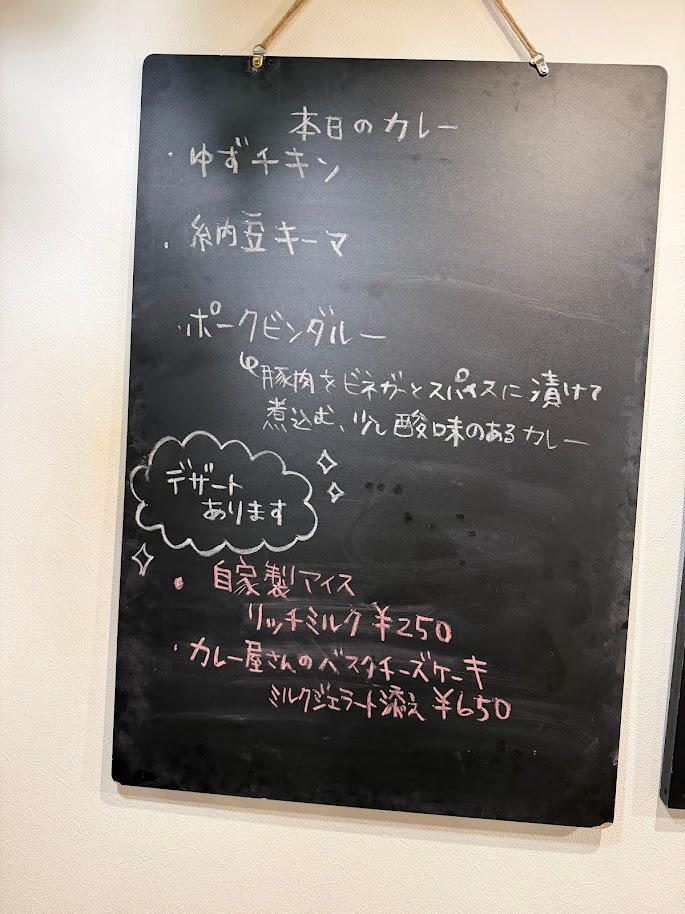 本日のカレー
・ゆずチキン
・納豆キーマ
・ポークビンダルー
豚肉をビネガーとスパイスに漬けて
煮込む、少し酸味のあるカレー
デザート
あります
・自家製アイス
リッチミルク ¥250
・カレー屋さんのバスクチーズケーキ
ミルクジェラート添え ¥650